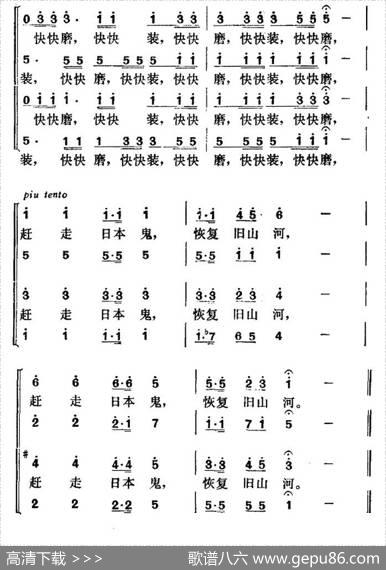 0 3 3 3· i i i 3 3 3 3 3 3 5 5 5 —
快快磨，快快 装，快快 磨，快快装，快快磨，
5· 5 5 5 5 5 5 i i i i i i i i i —
装，快快 磨，快快装，快快 磨，快快装，快快磨，
0 i i i· i i i i i i i i i 3 3 3 —
快快磨，快快 装，快快 磨，快快装，快快磨，
5· i i i 3 3 3 5 5 5 5 5 5 i i i —
装，快快 磨，快快装，快快 磨，快快装，快快磨，
piu tento
i i i·i i i·i 4 5 6 —
赶 走 日本 鬼， 恢复 旧山 河，
5 5 5·5 5 5·5 i i i —
3 3 3·3 3 3·3 2 3 4 —
赶 走 日本 鬼， 恢复 旧山 河，
1 1 1·1 1 1·♭7 6 5 4 —
6 6 6·6 5 5·5 2 3 i —
赶 走 日本 鬼， 恢复 旧山 河。
2 2 2·1 7 1·1 7 1 5 —
#4 4 4·4 5 3·3 4 5 3 —
赶 走 日本 鬼， 恢复 旧山 河。
2 2 2·2 5 5·5 5 5 1 —
高清下载 >>>
歌谱八六 www.gepu86.com